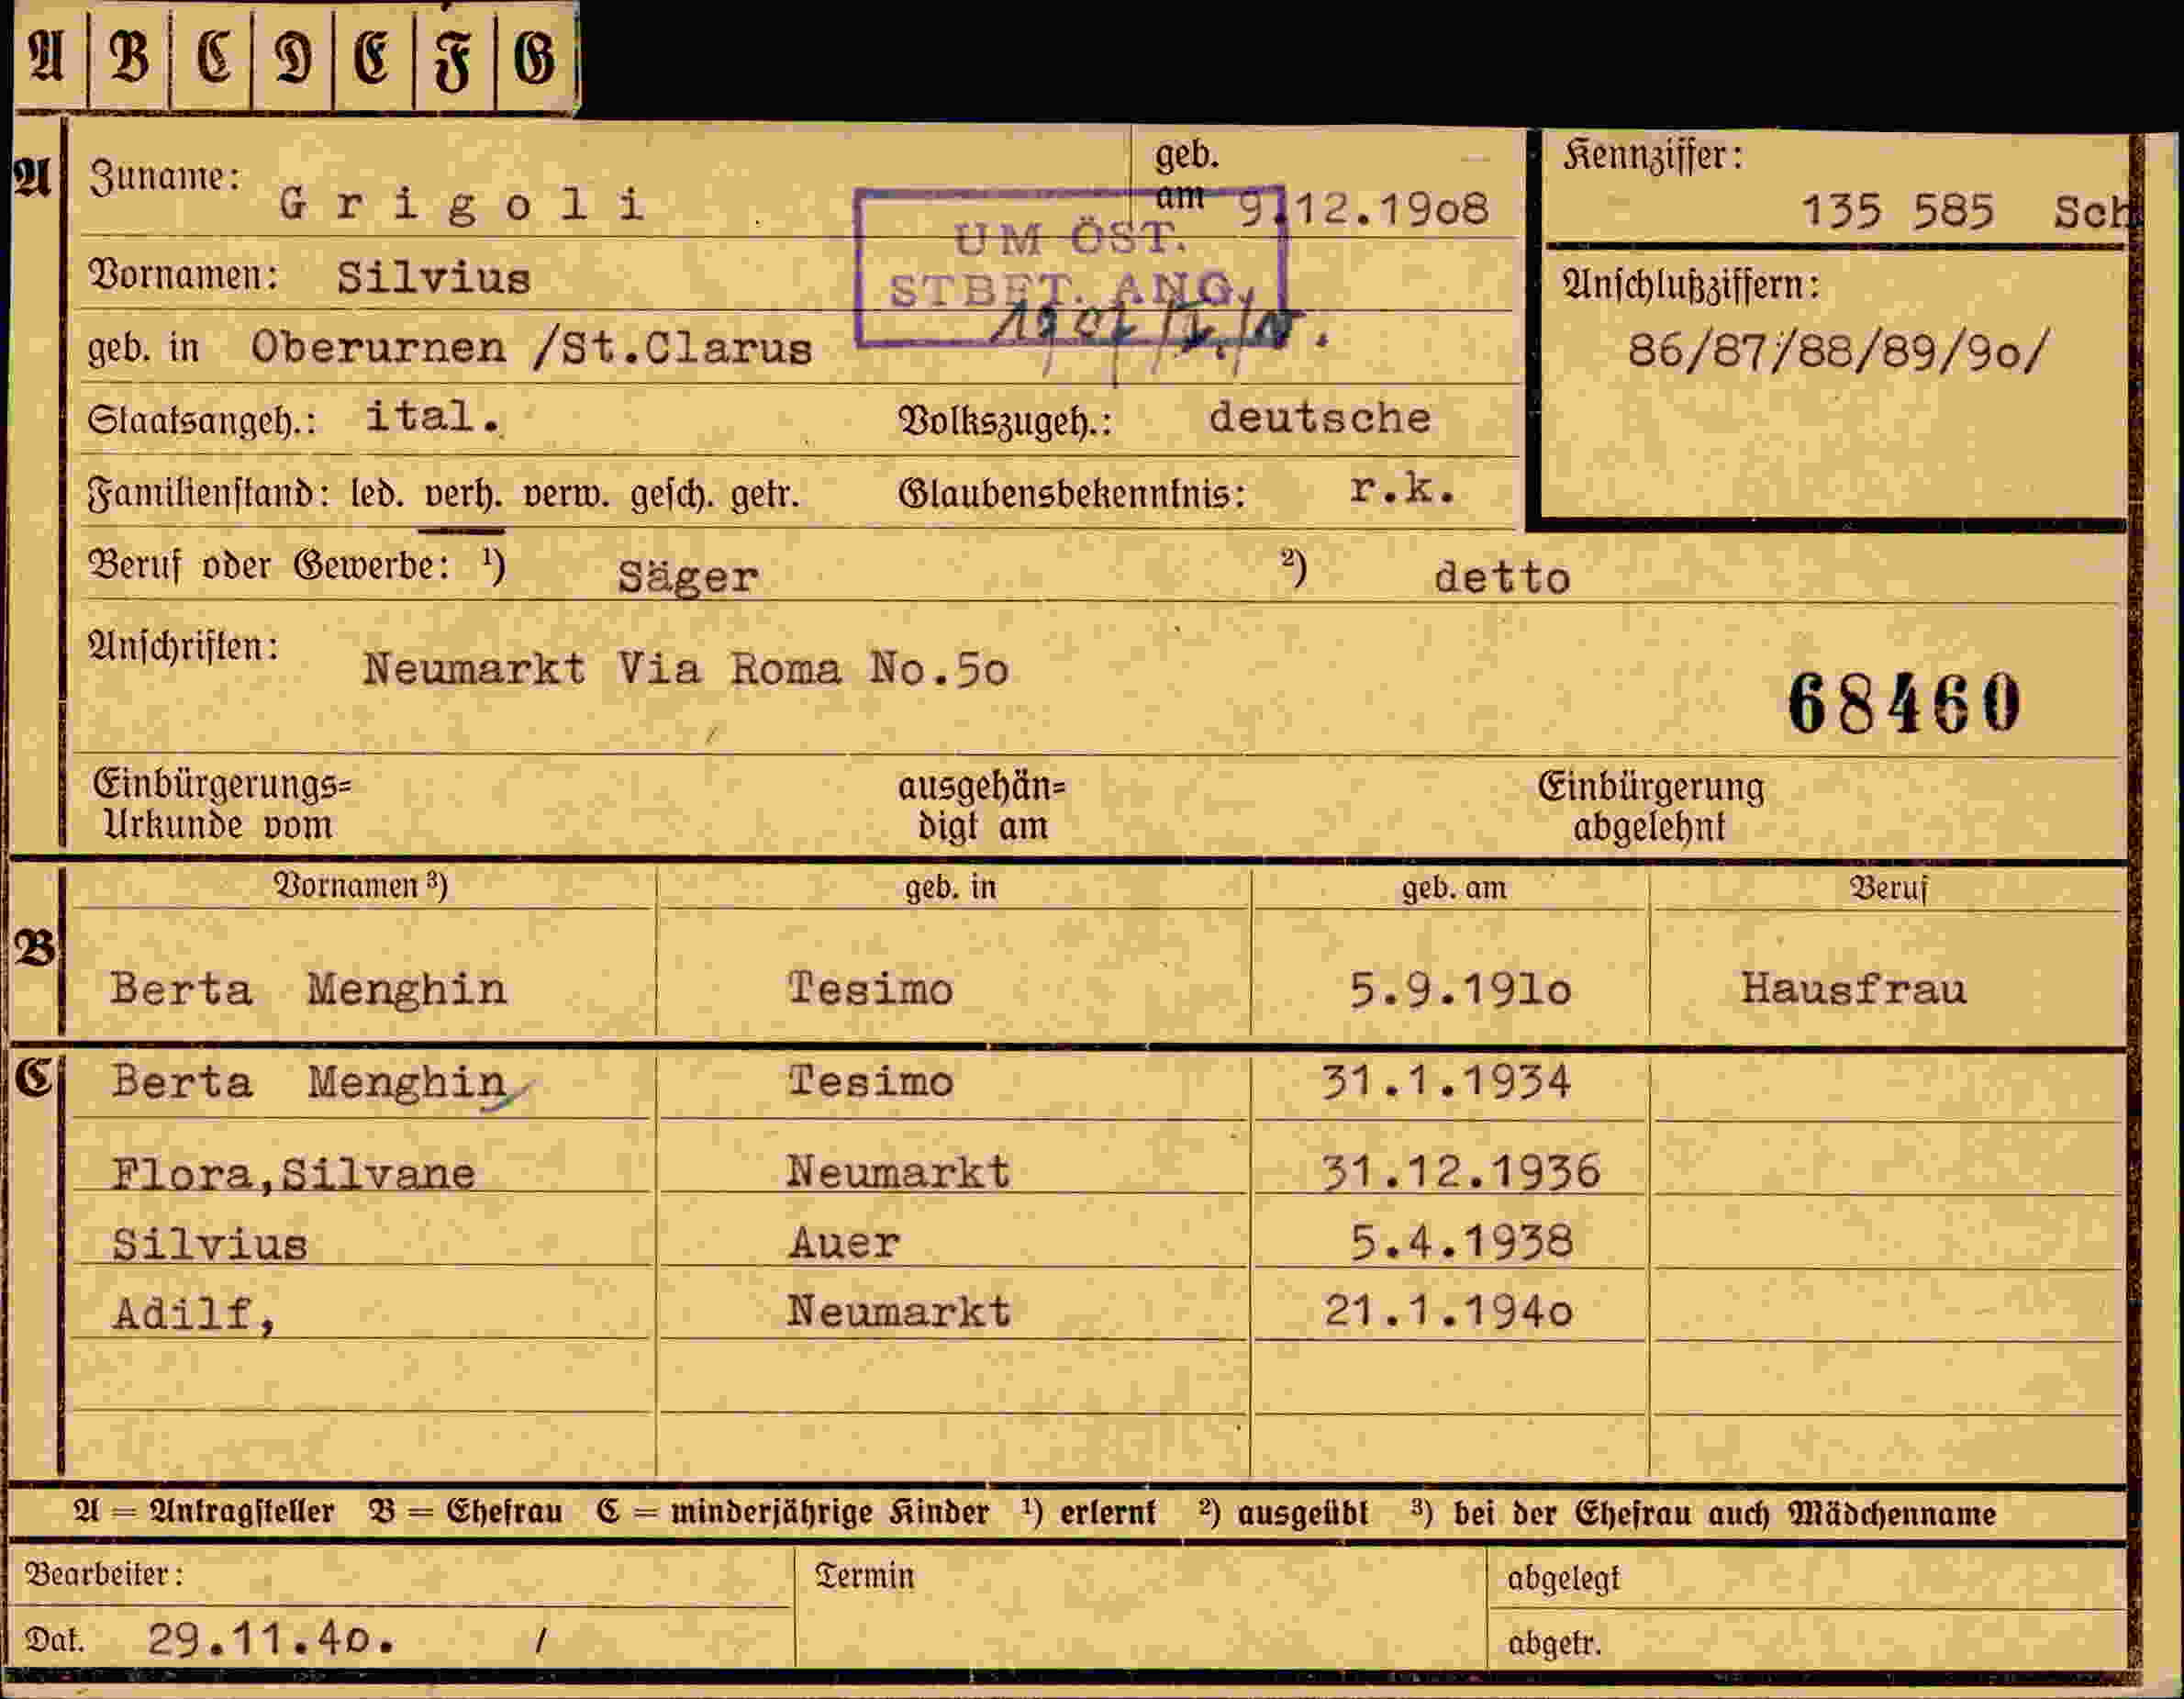 A B C D E F G
A Zuname: Grigoli geb. am 9.12.19o8 Kennziffer: 135 585 Sch
UM ÖST.
STBET. ANG.
Vornamen: Silvius Anschlußziffern:
geb. in Oberurnen /St.Clarus 86/87/88/89/9o/
Staatsangeh.: ital. Volkszugeh.: deutsche
Familienstand: led. verh. verw. gesch. getr. Glaubensbekenntnis: r.k.
Beruf oder Gewerbe: ¹) Säger ²) detto
Anschriften: Neumarkt Via Roma No.5o
68460
Einbürgerungs= ausgehän= Einbürgerung
Urkunde vom digt am abgelehnt
Vornamen ³) geb. in geb. am Beruf
B Berta Menghin Tesimo 5.9.191o Hausfrau
C Berta Menghin Tesimo 31.1.1934
Flora,Silvane Neumarkt 31.12.1936
Silvius Auer 5.4.1938
Adilf, Neumarkt 21.1.194o
A = Antragsteller B = Ehefrau C = minderjährige Kinder ¹) erlernt ²) ausgeübt ³) bei der Ehefrau auch Mädchenname
Bearbeiter: Termin abgelegt
Dat. 29.11.4o. / abgetr.